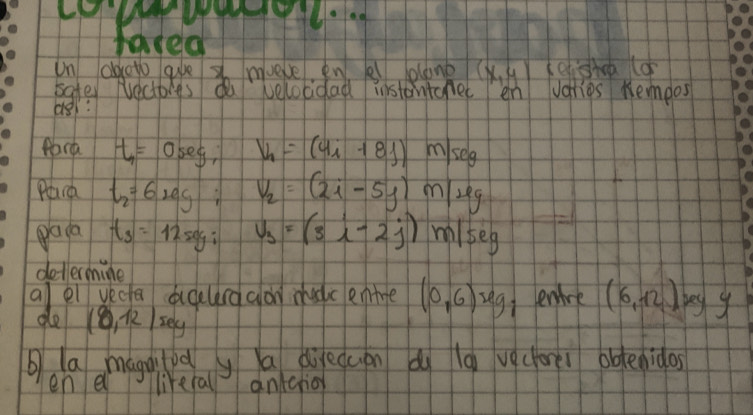 continuación...
tarea
Un objeto que se mueve en el plano (x,y) registra los
vectores de velocidad instantanec en varios tiempos
asi:
Para t₁= 0seg; V₁ = (4i + 8j) m/seg
Para t₂=6seg; V₂ = (2i - 5j) m/seg
para t₃= 12seg; V₃ = (3i - 2j) m/seg
determine
a) el vecta aceleracion medic entre (0,6)seg; entre (6,12)seg y
de (0,12)seg
b) la magnitud y la direccion de los vectores obtenidos
en el literal anterior